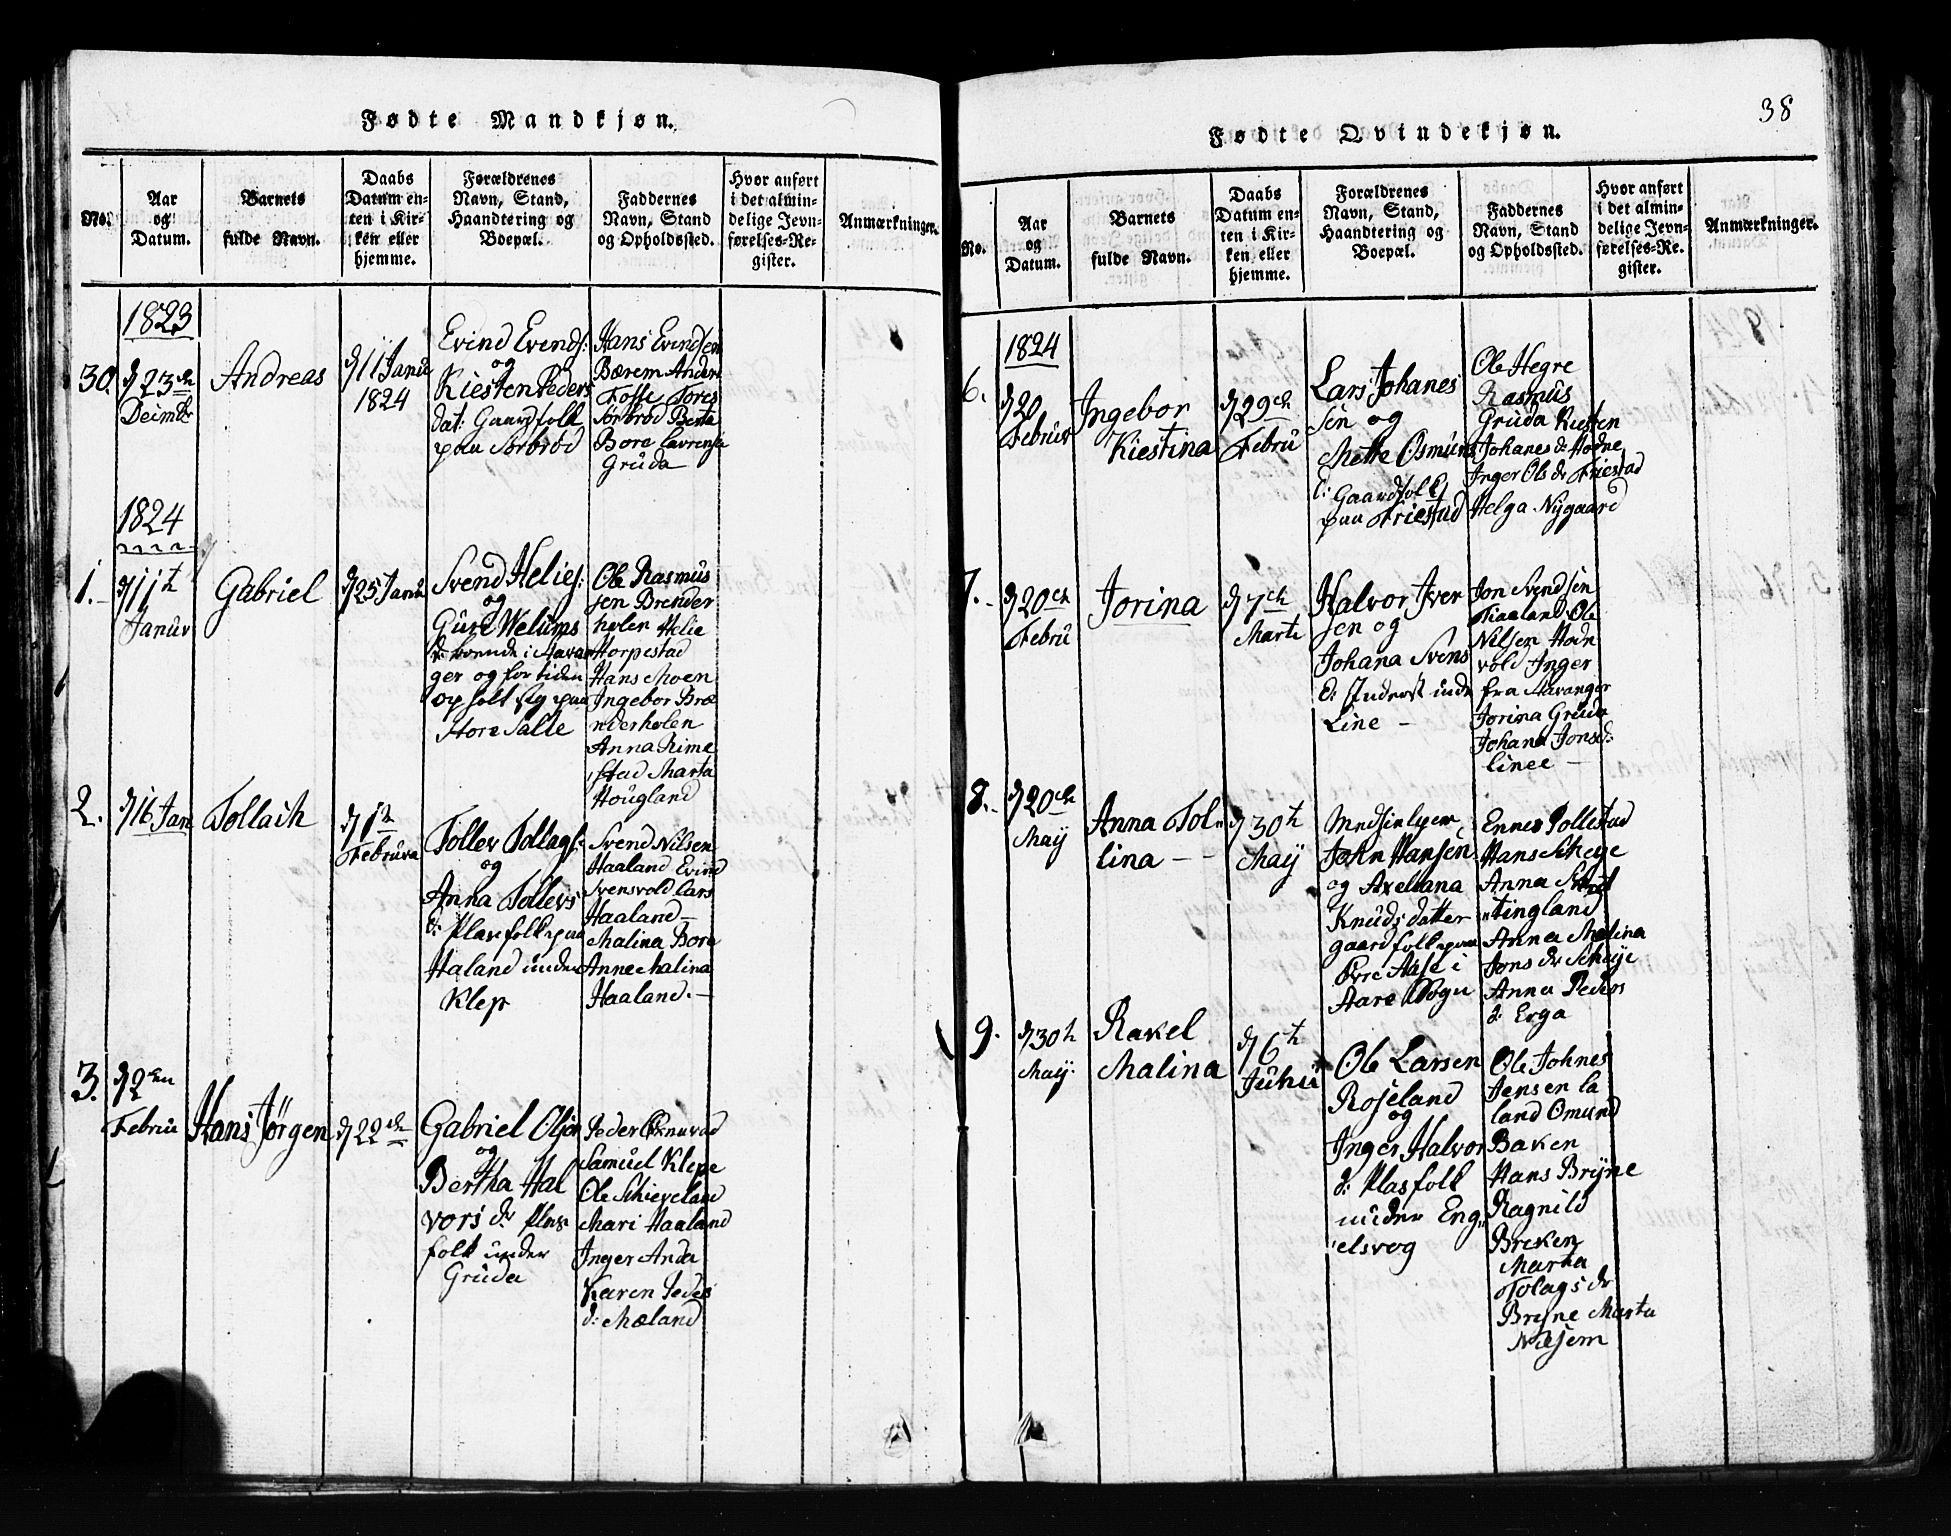 Fødte Mandkjøn.
No.
Aar
og
Datum.
Barnets
fulde Navn.
Daabs
Datum en-
ten i Kir-
ken eller
hjemme.
Forældrenes
Navn, Stand,
Haandtering og
Boepæl.
Faddernes
Navn, Stand
og Opholdssted.
Hvor anført
i det almin-
delige Jevn-
førelses-Re-
gister.
Anmærkninger.
1823
30.
d 23de
Deimbr
Andreas
d 11 Janu
1824
Evind Evends:
og
Kiesten Peders
dat: Gaardfolk
paa Sørbrød
Hans Evindsen
Bærem Anders
Fosse Tores
Sørbrød Berta
Bore Lavrensa
Gruda
1824
1.
d 11t
Januv
Gabriel
d 25 Janu
Svend Helies:
og
Gure Welums
d: boende i Aavan
ger og for tiden
opholt sig paa
Store Salte
Ole Rasmus
sen Brender
holen Helie
Horpestad
Hans Moen
Ingebor Bræ
nderholen
Anna Rime
stad Marta
Hougland
2.
d 16 Jan
Tollach
d 1t
Februva
Tollev Tollags:
og
Anna Tollevs
d: Plasfolk paa
Haland under
Klep
Svend Nilsen
Haaland Evind
Svensvold Lars
Haaland
Malina Bore
Anne Malina
Haaland.
3.
d 2en
Februi
Hans Jørgen
d 22de
Gabriel Olsen
og
Bertha Hal
vors dr Plas
folk under
Gruda
Peder
Samuel Klepe
Ole Schieveland
Mari Haaland
Inger Anda
Karen Peders
d: Mæland
38
Fødte Qvindekjøn.
No.
Aar
og
Datum.
Barnets
fulde Navn.
Daabs
Datum en-
ten i Kir-
ken eller
hjemme.
Forældrenes
Navn, Stand,
Haandtering og
Boepæl.
Faddernes
Navn, Stand
og Opholdssted.
Hvor anført
i det almin-
delige Jevn-
førelses-Re-
gister.
Anmærkninger.
1824
6.
d 20
Februv
Ingebor
Kiestina
d 29de
Febru
Lars Johanes
sen og
Mette Osmuns
d: Gaardfolk
paa Friestad
Ole Hegre
Rasmus
Gruda Kiesten
Johanes d: Hodne
Inger Ols dr Friestad
Helga Nygaard
7.
d 20de
Febru
Jorina
d 7de
Marti
Halvor Iver
sen og
Johana Svens
d: Inderst inde
Line
Jon Svendsen
Tiaaland Ole
Nilsen Hodn
vold Inger
fra Aavanger
Jorina Gruda
Johana Jons d:
Linee
8.
d 20de
May
Anna Tol
lina
d 30t
May
John Hansen
og Axeliana
Knudsdatter
gaardfolk paa
Øvre Aase i
Aare Sogn
Ennes Pollestad
Hans Scheye
Anna
tingland
Anna Malina
Jons dr Scheye
Anna Peders
d: Erga
9.
d 30t
May.
Rakel
Malina
d 6t
Juhni
Ole Larsen
Roseland
og
Inger Halvor
d: Plasfolk
under Eng
elsvog
Ole Johnes
Jensen La
land Omund
Baken
Hans Bryne
Ragnild
Breken
Marta
Tolags dr
Bryne Marta
Nilsem